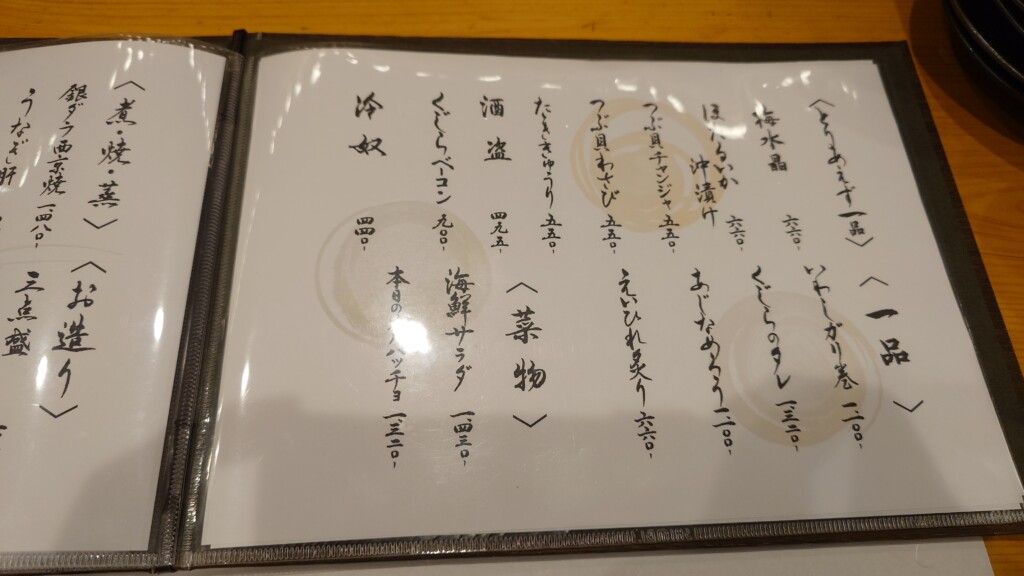 〈とりあえず一品〉
梅水晶 六六〇-
ほたるいか
沖漬け 六六〇-
つぶ貝チャンジャ 五五〇-
つぶ貝わさび 五五〇-
たたききゅうり 五五〇-
酒盗 四九五-
くじらベーコン 九〇〇-
冷奴 四四〇-
〈一品〉
いわしガリ巻 一一〇〇-
くじらのタレ 一三二〇-
あじなめろう 一一〇〇-
えいひれ炙り 六六〇-
〈菜物〉
海鮮サラダ 一四三〇-
本日のカルパッチョ 一三二〇-
〈煮・焼・蒸〉
銀ダラ西京焼 一四八〇-
うなぎ肝
〈お造り〉
三点盛